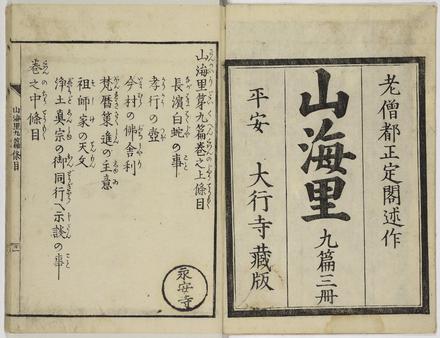 老僧都正定閣述作
山海里 九篇三冊
平安 大行寺藏版
山海里第九篇巻之上條目
長濵白蛇の事
孝行の壺
今村の佛舎利
梵暦策進の主意
祖師家の天文
浄土真宗の御同行へ示談の事
巻之中條目
山海里九篇 條目
永安寺